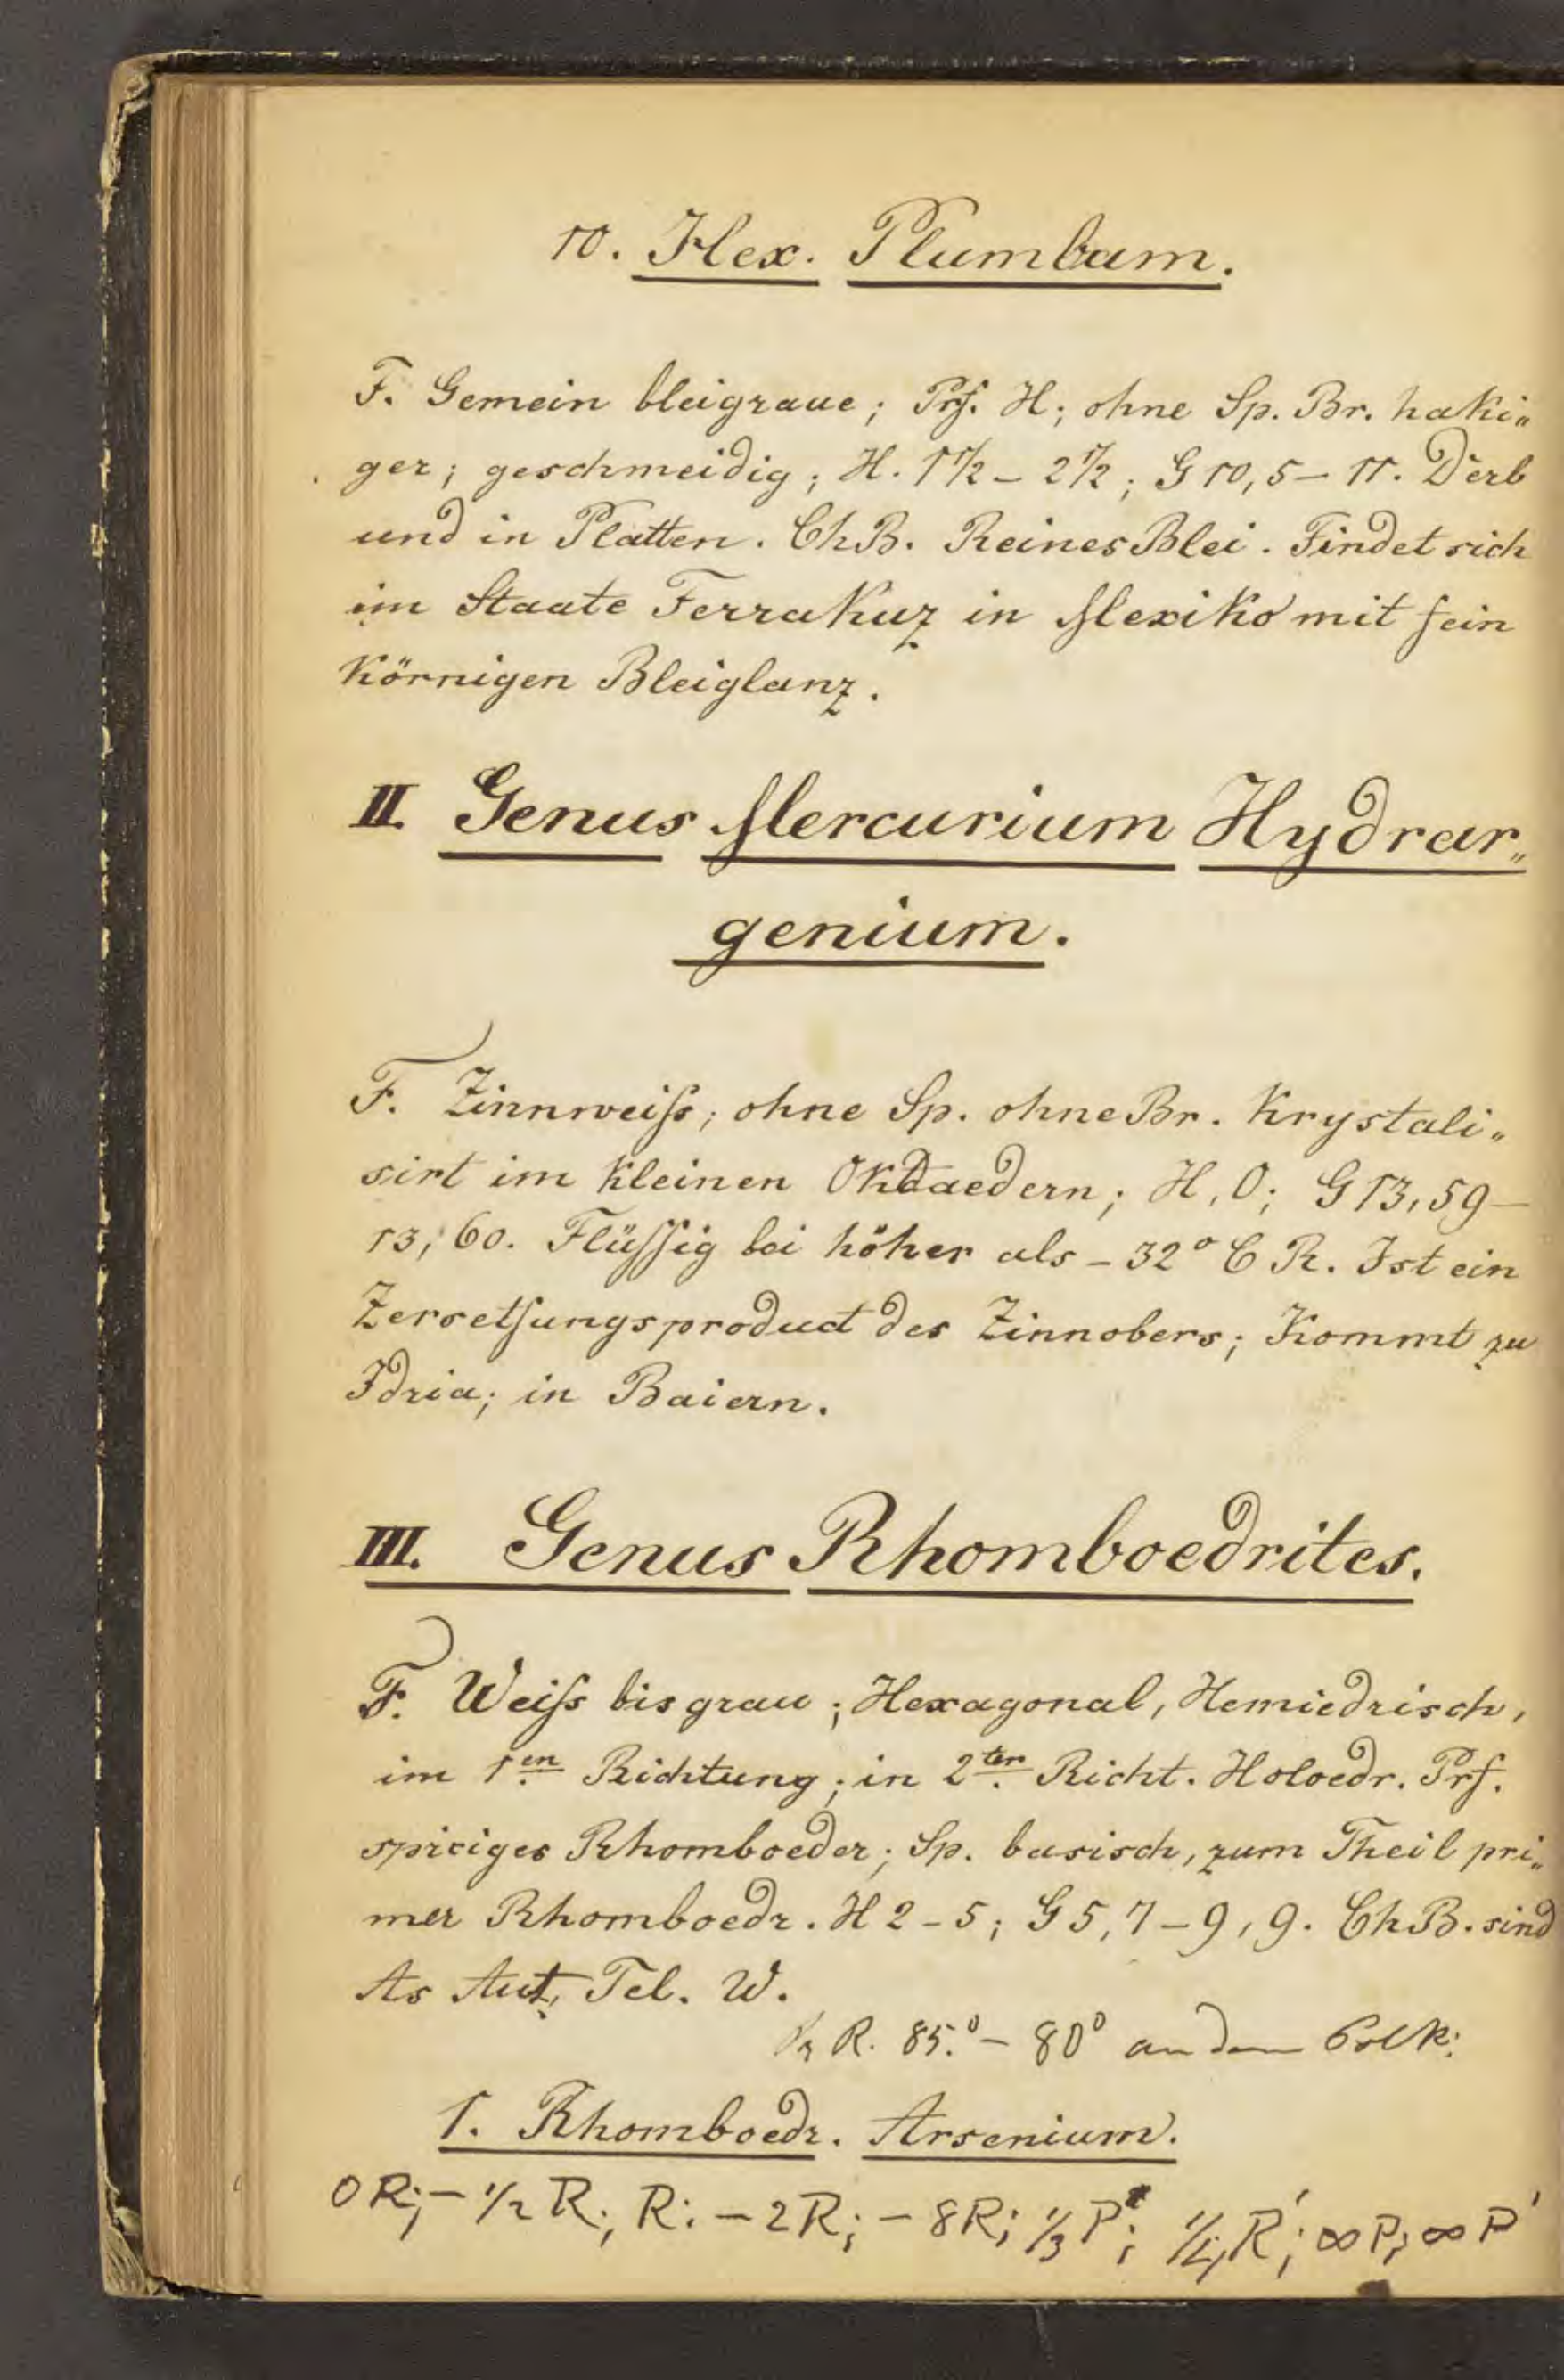 10. Hex. Plumbum.
F. Gemein bleigraue; Prf. H; ohne Sp. Br. haki„
ger; geschmeidig; H. 1 1/2 – 2 1/2; G 10,5 – 11. Derb
und in Platten. Ch B. Reines Blei. Findet sich
im Staate Ferrakuz in Mexiko mit fein
körnigen Bleiglanz.
II. Genus Mercurium Hydrar„
genium.
F. Zinnweiſs; ohne Sp. ohne Br. Krystali„
sirt im kleinen Oktaedern; H, 0; G 13,59 –
13,60. Flüſſig bei höher als – 32° C R. Ist ein
Zersetſungsproduct des Zinnobers; Kommt zu
Idria; in Baiern.
III. Genus Rhomboedrites.
F. Weiſs bis grau; Hexagonal, Hemiedrisch,
im 1en Richtung; in 2ter Richt. Holoedr. Prf.
spiciges Rhomboeder; Sp. basisch, zum Theil pri„
mer Rhomboedr. H 2 – 5; G 5,7 – 9,9. Ch B. sind
As Ant, Tel. W.
R. 85.° – 80° an den Polk:
1. Rhomboedr. Arsenium.
0 R; – 1/2 R; R: – 2R; – 8R; 1/3 P; 1/4 R'; ∞ P; ∞ P'